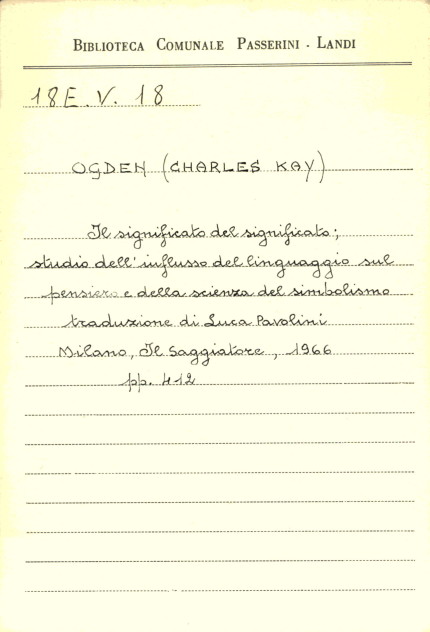 BIBLIOTECA COMUNALE PASSERINI - LANDI
18E.V. 18
OGDEN (CHARLES KAY)
Il significato del significato;
studio dell'influsso del linguaggio sul
pensiero e della scienza del simbolismo
traduzione di Luca Pavolini
Milano, Il Saggiatore, 1966
pp. 412